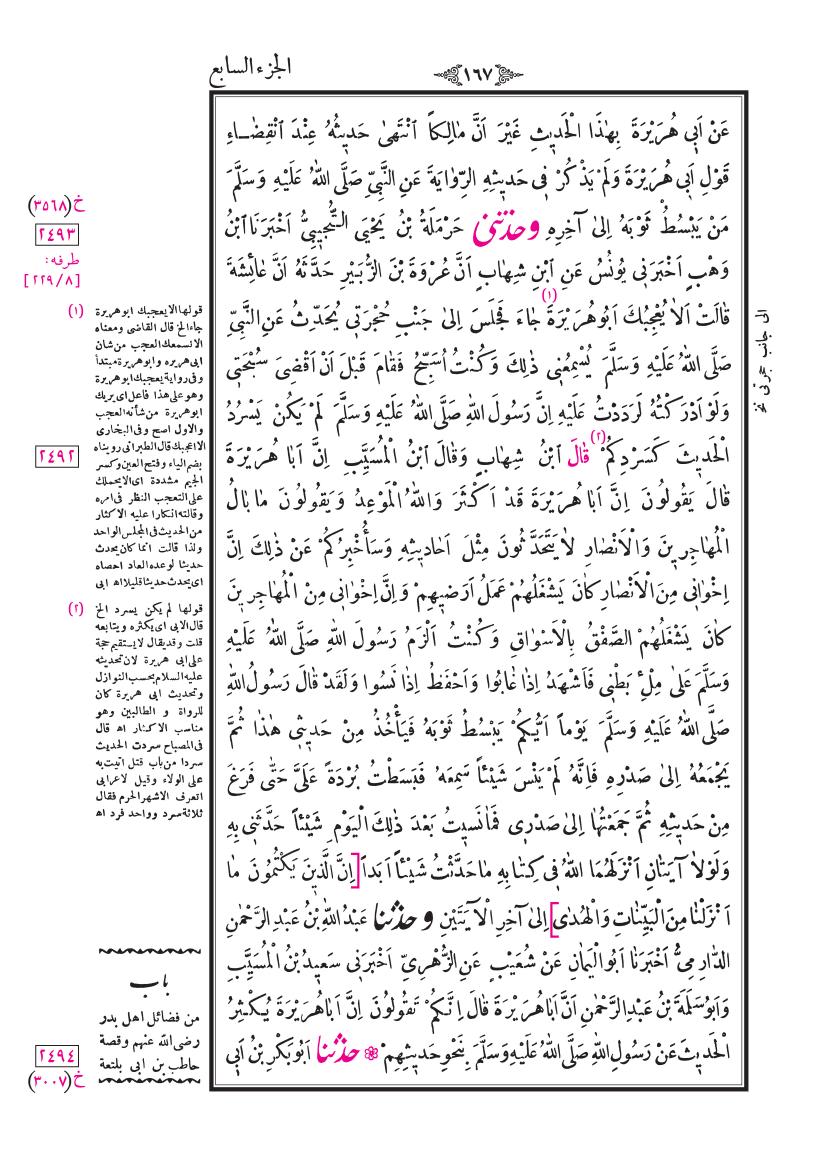 الجزء السابع
١٦٧
عَنْ اَبِي هُرَيْرَةَ بِهٰذَا الْحَدِيثِ غَيْرَ اَنَّ مَالِكاً انْتَهىٰ حَدِيثُهُ عِنْدَ انْقِضَاءِ
قَوْلِ اَبِي هُرَيْرَةَ وَلَمْ يَذْكُرْ فِي حَدِيثِهِ الرِّوَايَةَ عَنِ النَّبِيِّ صَلَّى اللهُ عَلَيْهِ وَسَلَّمَ
مَنْ يَبْسُطْ ثَوْبَهُ اِلىٰ آخِرِهِ وحَدَّثَنِى حَرْمَلَةُ بْنُ يَحْيَى التُّجِيبِيُّ اَخْبَرَنَا ابْنُ
وَهْبٍ اَخْبَرَنِى يُونُسُ عَنِ ابْنِ شِهَابٍ اَنَّ عُرْوَةَ بْنَ الزُّبَيْرِ حَدَّثَهُ اَنَّ عَائِشَةَ
قَالَتْ اَلاَ يُعْجِبُكَ اَبُو هُرَيْرَةَ (١) جَاءَ فَجَلَسَ اِلىٰ جَنْبِ حُجْرَتِى يُحَدِّثُ عَنِ النَّبِيِّ
صَلَّى اللهُ عَلَيْهِ وَسَلَّمَ يُسْمِعُنِى ذٰلِكَ وَكُنْتُ اُسَبِّحُ فَقَامَ قَبْلَ اَنْ اَقْضِىَ سُبْحَتِى
وَلَوْ اَدْرَكْتُهُ لَرَدَدْتُ عَلَيْهِ اِنَّ رَسُولَ اللهِ صَلَّى اللهُ عَلَيْهِ وَسَلَّمَ لَمْ يَكُنْ يَسْرُدُ
الْحَدِيثَ كَسَرْدِكُمْ (٢) قَالَ ابْنُ شِهَابٍ وَقَالَ ابْنُ الْمُسَيَّبِ اِنَّ اَبَا هُرَيْرَةَ
قَالَ يَقُولُونَ اِنَّ اَبَا هُرَيْرَةَ قَدْ اَكْثَرَ وَاللهُ الْمَوْعِدُ وَيَقُولُونَ مَا بَالُ
الْمُهَاجِرِينَ وَالْاَنْصَارِ لاَ يَتَحَدَّثُونَ مِثْلَ اَحَادِيثِهِ وَسَأُخْبِرُكُمْ عَنْ ذٰلِكَ اِنَّ
اِخْوَانِى مِنَ الْاَنْصَارِ كَانَ يَشْغَلُهُمْ عَمَلُ اَرَضِيهِمْ وَاِنَّ اِخْوَانِى مِنَ الْمُهَاجِرِينَ
كَانَ يَشْغَلُهُمُ الصَّفْقُ بِالْاَسْوَاقِ وَكُنْتُ اَلْزَمُ رَسُولَ اللهِ صَلَّى اللهُ عَلَيْهِ
وَسَلَّمَ عَلىٰ مِلْءِ بَطْنِى فَاَشْهَدُ اِذَا غَابُوا وَاَحْفَظُ اِذَا نَسُوا وَلَقَدْ قَالَ رَسُولُ اللهِ
صَلَّى اللهُ عَلَيْهِ وَسَلَّمَ يَوْماً اَيُّكُمْ يَبْسُطُ ثَوْبَهُ فَيَأْخُذُ مِنْ حَدِيثِى هٰذَا ثُمَّ
يَجْمَعُهُ اِلىٰ صَدْرِهِ فَاِنَّهُ لَمْ يَنْسَ شَيْئاً سَمِعَهُ فَبَسَطْتُ بُرْدَةً عَلَيَّ حَتّٰى فَرَغَ
مِنْ حَدِيثِهِ ثُمَّ جَمَعْتُهَا اِلىٰ صَدْرِى فَمَا نَسِيتُ بَعْدَ ذٰلِكَ الْيَوْمِ شَيْئاً حَدَّثَنِى بِهِ
وَلَوْلاَ آيَتَانِ اَنْزَلَهُمَا اللهُ فِى كِتَابِهِ مَا حَدَّثْتُ شَيْئاً اَبَداً [اِنَّ الَّذِينَ يَكْتُمُونَ مَا
اَنْزَلْنَا مِنَ الْبَيِّنَاتِ وَالْهُدٰى] اِلىٰ آخِرِ الْآيَتَيْنِ وحَدَّثَنَا عَبْدُ اللهِ بْنُ عَبْدِ الرَّحْمٰنِ
الدَّارِمِىُّ اَخْبَرَنَا اَبُو الْيَمَانِ عَنْ شُعَيْبٍ عَنِ الزُّهْرِىِّ اَخْبَرَنِى سَعِيدُ بْنُ الْمُسَيَّبِ
وَاَبُو سَلَمَةَ بْنُ عَبْدِ الرَّحْمٰنِ اَنَّ اَبَا هُرَيْرَةَ قَالَ اِنَّكُمْ تَقُولُونَ اِنَّ اَبَا هُرَيْرَةَ يُكْثِرُ
الْحَدِيثَ عَنْ رَسُولِ اللهِ صَلَّى اللهُ عَلَيْهِ وَسَلَّمَ بِنَحْوِ حَدِيثِهِمْ ۞ حَدَّثَنَا اَبُو بَكْرِ بْنُ اَبِى
الى جانب حجرتى نخ
خ (٣٥٦٨)
٢٤٩٣
طرفه:
[٢٢٩/٨]
٢٤٩٢
(١) قولها الا يعجبك ابو هريرة
جاء الخ قال القاضى ومعناه
الا نسمعك العجب من شان
ابى هريره وابو هريرة مبتدأ
وفى رواية يعجبك ابو هريرة
وهو على هذا فاعل اى يريك
ابو هريرة من شأنه العجب
والاول اصح وفى البخارى
الا اعجبك قال الطبرانى رويناه
بضم الياء وفتح العين وكسر
الجيم مشددة اى الا يحملك
على التعجب النظر فى امره
وقالته انكارا عليه الاكثار
من الحديث فى المجلس الواحد
ولذا قالت انما كان يحدث
حديثا لو عده العاد احصاه
اى يحدث حديثا قليلا اه ابى
(٢) قولها لم يكن يسرد الخ
قال الابى اى يكثره ويتابعه
قلت وقد يقال لا يستقيم حجة
على ابى هريرة لان تحديثه
عليه السلام بحسب النوازل
وتحديث ابى هريرة كان
للرواة و الطالبين وهو
مناسب الاكثار اه قال
فى المصباح سردت الحديث
سردا من باب قتل اتيت به
على الولاء وقيل لاعرابى
اتعرف الاشهر الحرم فقال
ثلاثة سرد وواحد فرد اه
باب
من فضائل اهل بدر
رضى الله عنهم وقصة
حاطب بن ابى بلتعة
٢٤٩٤
خ (٣٠٠٧)